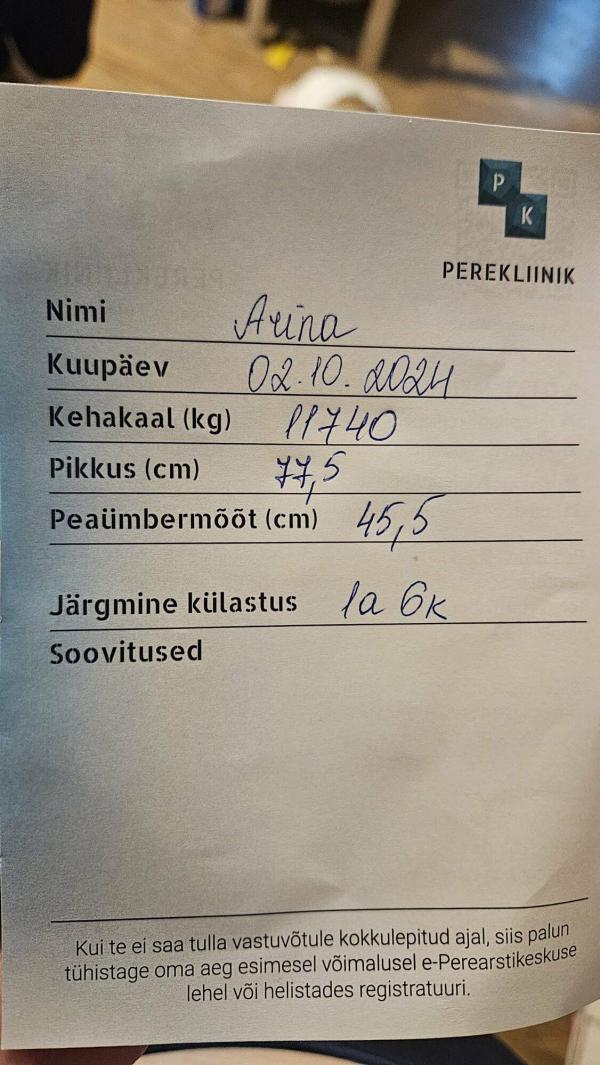 P
K
PEREKLIINIK
Nimi Arina
Kuupäev 02.10.2024
Kehakaal (kg) 11740
Pikkus (cm) 77,5
Peaümbermõõt (cm) 45,5
Järgmine külastus 1a 6k
Soovitused
Kui te ei saa tulla vastuvõtule kokkulepitud ajal, siis palun
tühistage oma aeg esimesel võimalusel e-Perearstikeskuse
lehel või helistades registratuuri.